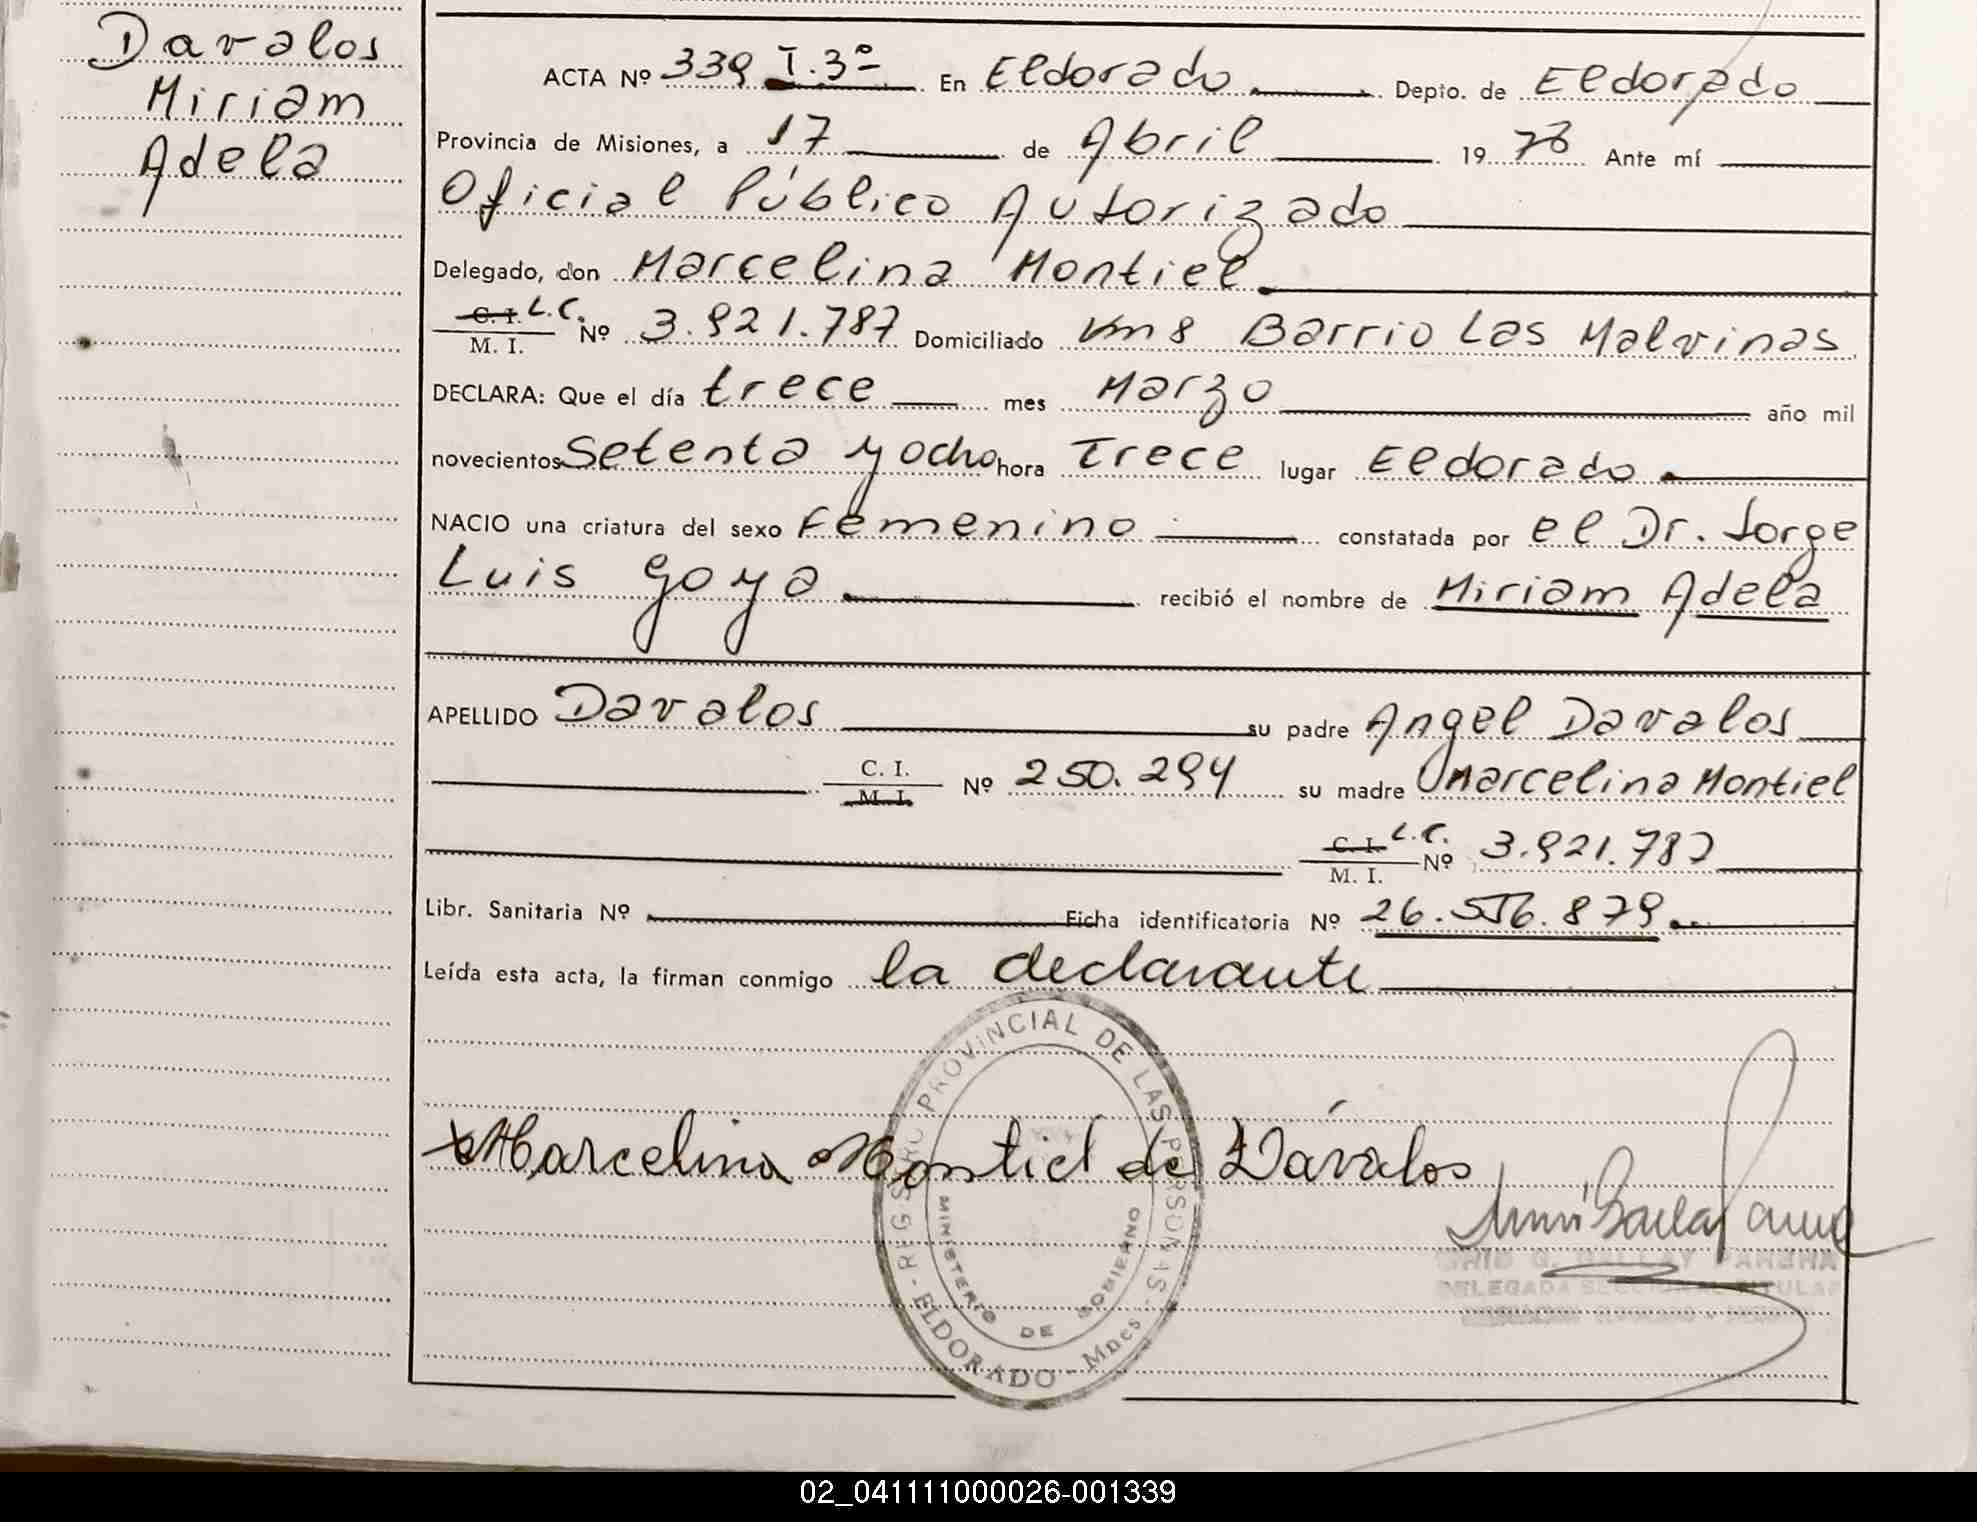 Davalos
Miriam
Adela
ACTA Nº 339 T.3º En Eldorado Depto. de Eldorado
Provincia de Misiones, a 17 de Abril 1978 Ante mí
Oficial Público Autorizado
Delegado, don Marcelina Montiel
C. I. L.C.
M. I. Nº 3.921.787 Domiciliado Km 8 Barrio Las Malvinas
DECLARA: Que el día trece mes Marzo año mil
novecientos Setenta y ocho hora Trece lugar Eldorado
NACIO una criatura del sexo Femenino constatada por el Dr. Jorge
Luis Goya recibió el nombre de Miriam Adela
APELLIDO Davalos su padre Angel Davalos
C. I.
M. I. Nº 250.294 su madre Marcelina Montiel
C. I. L.C.
M. I. Nº 3.921.787
Libr. Sanitaria Nº Ficha identificatoria Nº 26.556.879
Leída esta acta, la firman conmigo la declarante
REGISTRO PROVINCIAL DE LAS PERSONAS
MINISTERIO DE GOBIERNO
ELDORADO - Mnes
Marcelina Montiel de Dávalos
DELEGADA SECCIONAL TITULAR
02_041111000026-001339